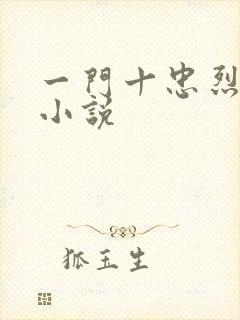 一門十忠烈
小説
狐玉生